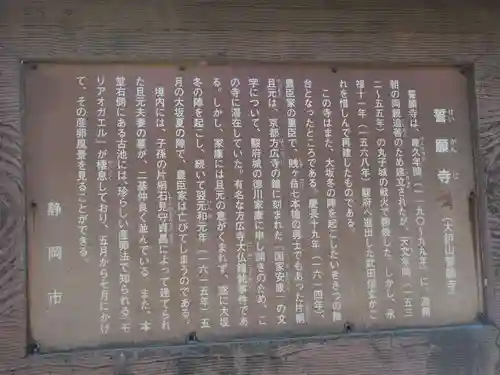 せい がん じ
誓願寺(大鈩山誓願寺)
誓願寺は、建久年間(一一九〇~九九年)に、源頼
朝の両親追善のため建立されたが、天文年間(一五三
二~五五年)の丸子城の戦火で焼費した。しかし、永
禄十一年(一五六八年)駿府へ進出した武田信玄がこ
れを惜しんで再建したものである。
この寺はまた、大坂冬の陣を起こしたいきさつの舞
台となったところである。慶長十九年(一六一四年)、
豊臣家の重臣で、賤ヶ岳七本槍の勇士でもあった片桐
且元は、京都方広寺の鐘に刻まれた「国家安康」の文
字について、駿府城の徳川家康に申し開きのため、こ
の寺に滞在していた。有名な方広寺大仏鐘銘事件であ
る。しかし、家康には且元の意がくまれず、遂に大坂
冬の陣を起こし、続いて翌元和元年(一六一五年)五
月の大坂夏の陣で、豊臣家は亡びてしまうのである。
境内には、子孫の片桐石見守貞昌によって建てられ
た且元夫妻の墓が、二基仲良く並んでいる。また、本
堂右側にある古池には、珍らしい産卵方法で知られる「モ
リアオガエル」が棲息しており、五月から七月にかけ
て、その産卵風景を見ることができる。
静岡市